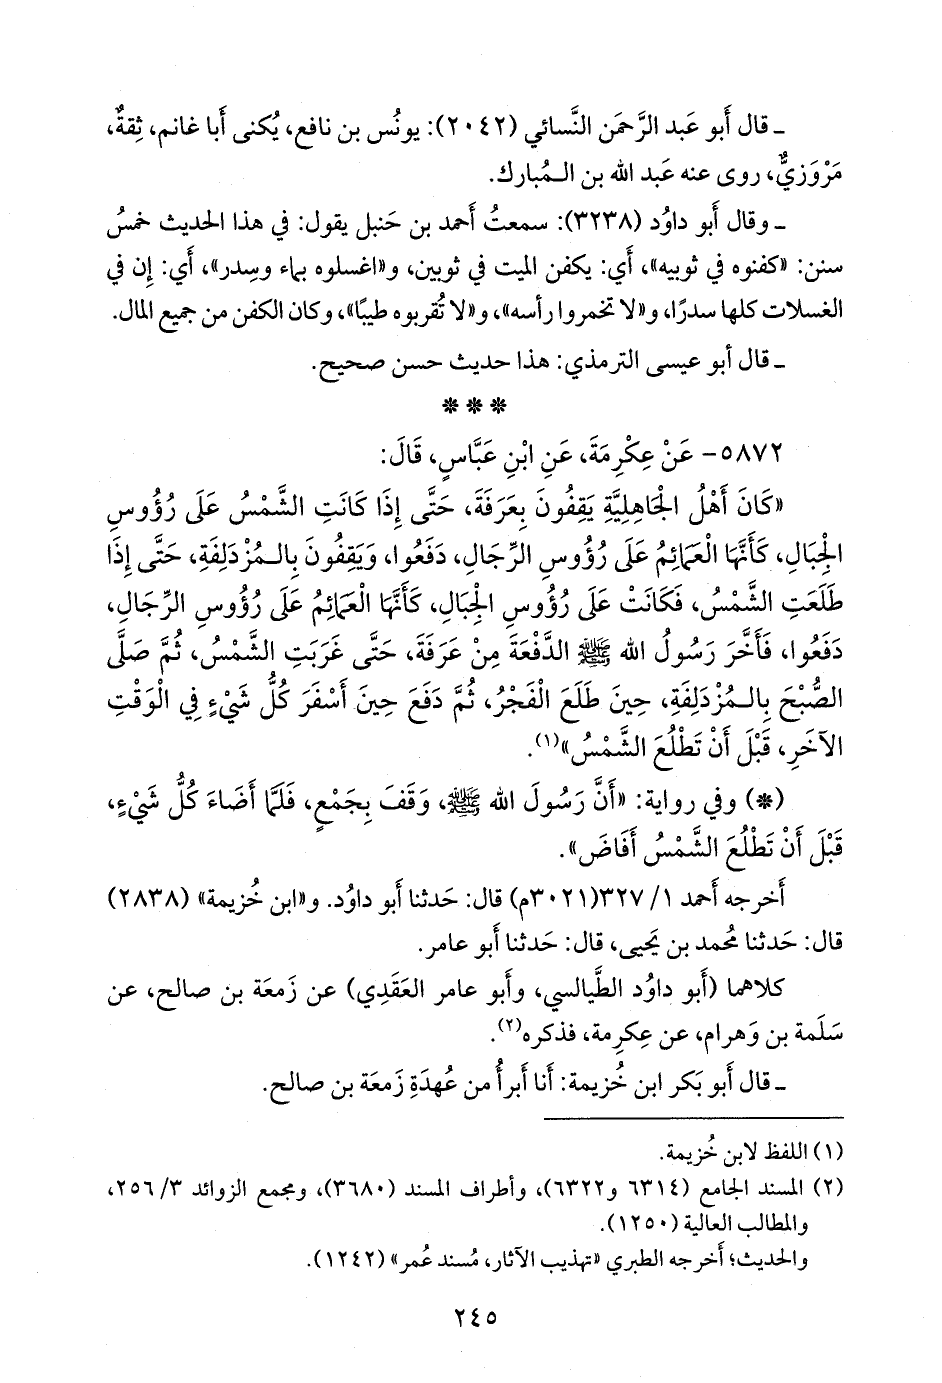 ـ قال أَبو عَبد الرَّحمَن النَّسائي (٢٠٤٢): يونُس بن نافع، يُكنى أَبا غانم، ثِقةٌ،
مَرْوَزيٌّ، روى عنه عَبد الله بن الـمُبارك.
ـ وقال أَبو داوُد (٣٢٣٨): سمعتُ أَحمد بن حَنبل يقول: في هذا الحديث خمسُ
سنن: «كفنوه في ثوبيه»، أَي: يكفن الميت في ثوبين، و«اغسلوه بماء وسِدر»، أَي: إِن في
الغسلات كلها سدرًا، و«لا تخمروا رأسه»، و«لا تُقربوه طيبًا»، وكان الكفن من جميع المال.
ـ قال أَبو عيسى الترمذي: هذا حديث حسن صحيح.
* * *
٥٨٧٢- عَنْ عِكْرِمَةَ، عَنِ ابْنِ عَبَّاسٍ، قَالَ:
«كَانَ أَهْلُ الْجَاهِلِيَّةِ يَقِفُونَ بِعَرَفَةَ، حَتَّى إِذَا كَانَتِ الشَّمْسُ عَلَى رُؤُوسِ
الْجِبَالِ، كَأَنَّهَا الْعَمَائِمُ عَلَى رُؤُوسِ الرِّجَالِ، دَفَعُوا، وَيَقِفُونَ بِالـمُزْدَلِفَةِ، حَتَّى إِذَا
طَلَعَتِ الشَّمْسُ، فَكَانَتْ عَلَى رُؤُوسِ الْجِبَالِ، كَأَنَّهَا الْعَمَائِمُ عَلَى رُؤُوسِ الرِّجَالِ،
دَفَعُوا، فَأَخَّرَ رَسُولُ الله ﷺ الدَّفْعَةَ مِنْ عَرَفَةَ، حَتَّى غَرَبَتِ الشَّمْسُ، ثُمَّ صَلَّى
الصُّبْحَ بِالـمُزْدَلِفَةِ، حِينَ طَلَعَ الْفَجْرُ، ثُمَّ دَفَعَ حِينَ أَسْفَرَ كُلُّ شَيْءٍ فِي الْوَقْتِ
الآخَرِ، قَبْلَ أَنْ تَطْلُعَ الشَّمْسُ»(١).
(*) وفي رواية: «أَنَّ رَسُولَ الله ﷺ، وَقَفَ بِجَمْعٍ، فَلَمَّا أَضَاءَ كُلُّ شَيْءٍ،
قَبْلَ أَنْ تَطْلُعَ الشَّمْسُ أَفَاضَ».
أَخرجه أَحمد ١/ ٣٢٧(٣٠٢١م) قال: حَدثنا أَبو داوُد. و«ابن خُزيمة» (٢٨٣٨)
قال: حَدثنا مُحمد بن يَحيى، قال: حَدثنا أَبو عامر.
كلاهما (أَبو داوُد الطَّيالسي، وأَبو عامر العَقَدي) عن زَمعَة بن صالح، عن
سَلَمة بن وَهرام، عن عِكرِمة، فذكره(٢).
ـ قال أَبو بَكر ابن خُزيمة: أَنا أَبرأُ من عُهدَةِ زَمعَة بن صالح.
(١) اللفظ لابن خُزيمة.
(٢) المسند الجامع (٦٣١٤ و٦٣٢٢)، وأطراف المسند (٣٦٨٠)، ومجمع الزوائد ٣/ ٢٥٦،
والمطالب العالية (١٢٥٠).
والحديث؛ أَخرجه الطبري «تهذيب الآثار، مُسند عُمر» (١٢٤٢).
٢٤٥